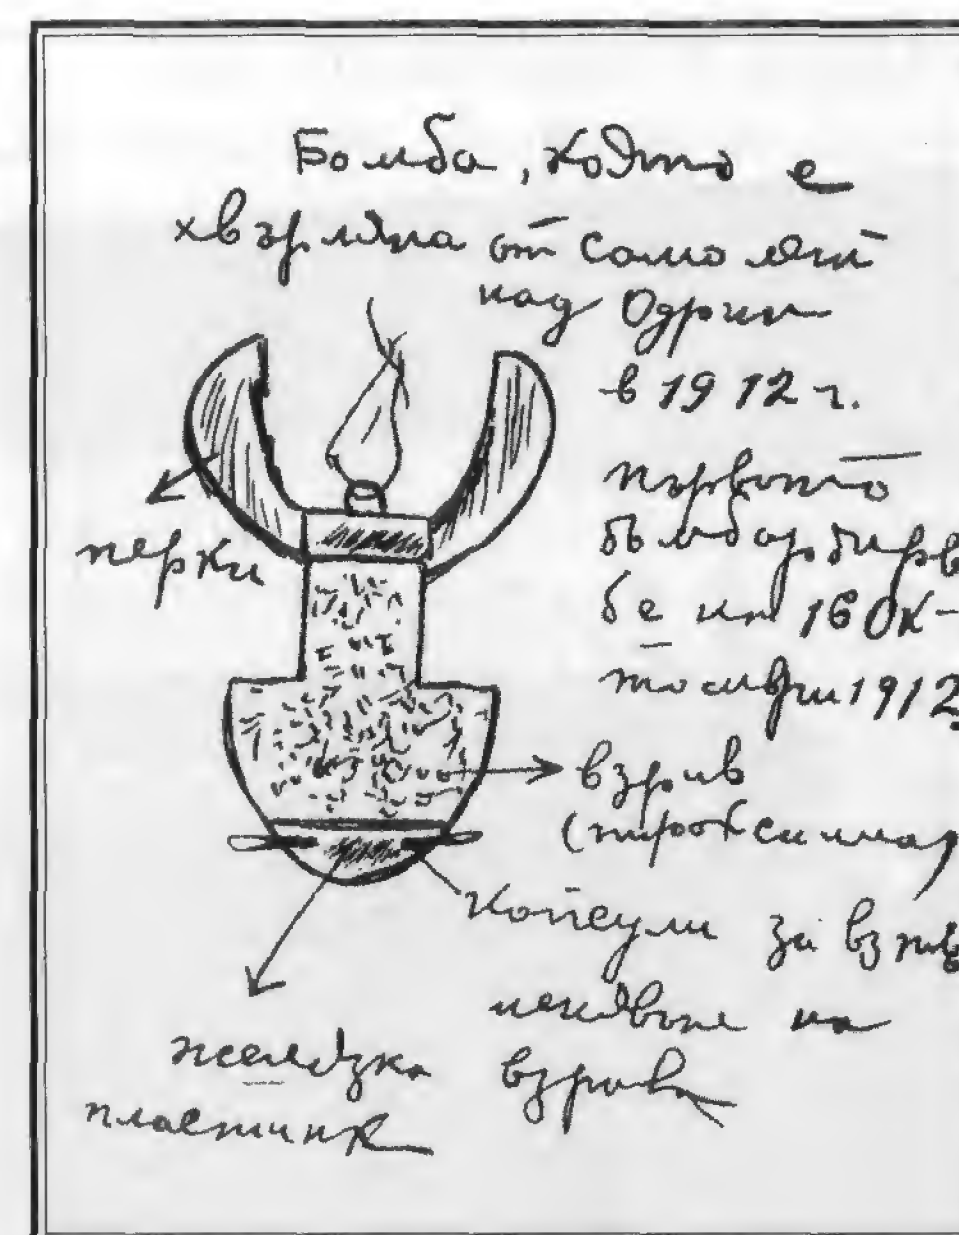 Бомба, която е
хвърляна от самолет
над Одрин
в 1912 г.
първото
бомбардирв
бе на 16 Ок-
томври 1912.
перки
взрив
(пироксилина)
Капсули за възпл
меняване на
взрива
желязка
пластинка